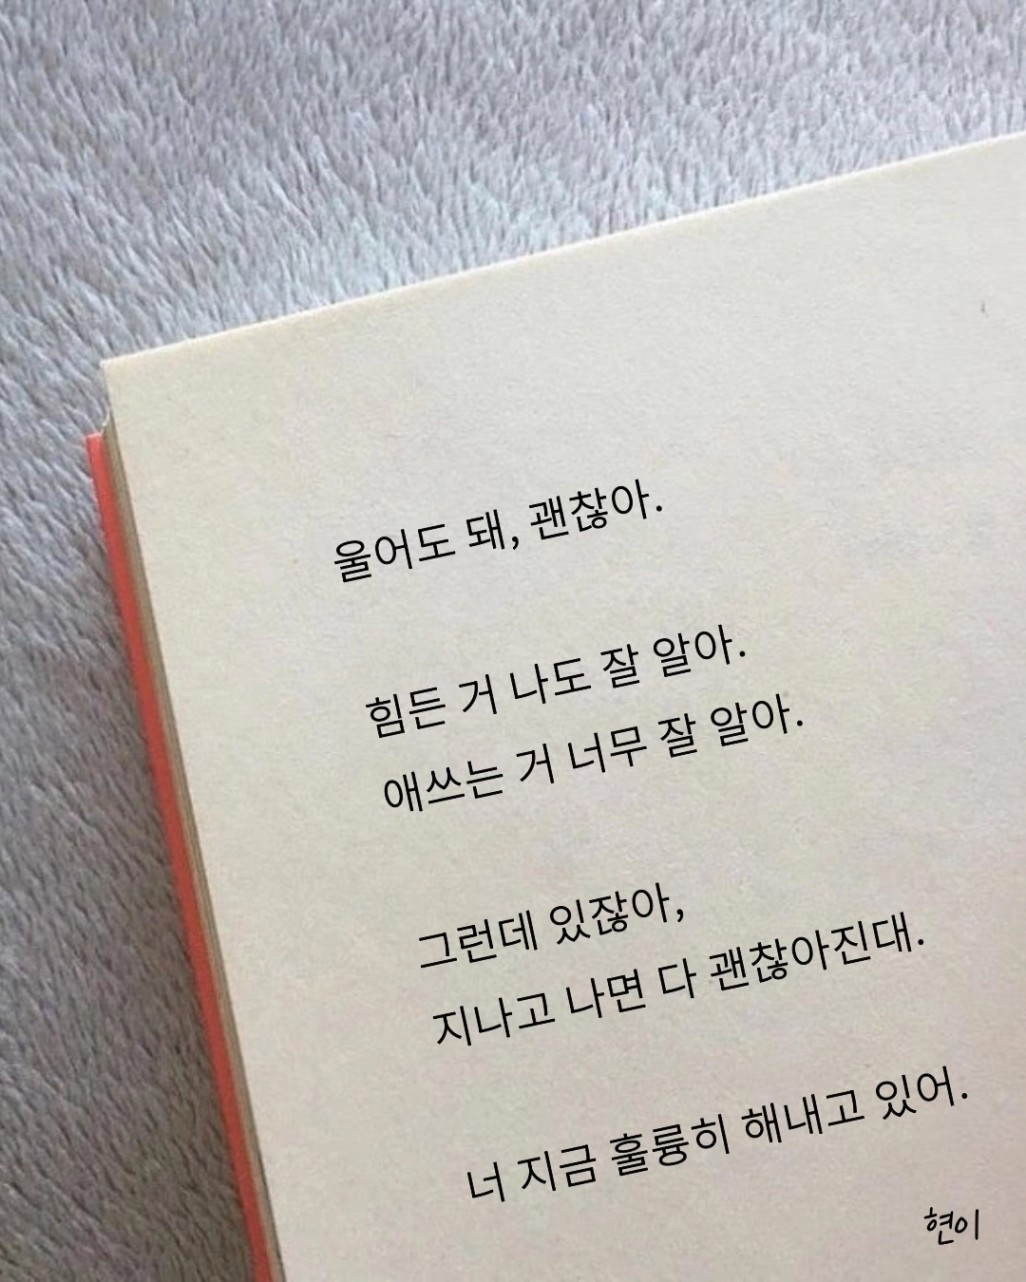 울어도 돼, 괜찮아.
힘든 거 나도 잘 알아.
애쓰는 거 너무 잘 알아.
그런데 있잖아,
지나고 나면 다 괜찮아진대.
너 지금 훌륭히 해내고 있어.
현이